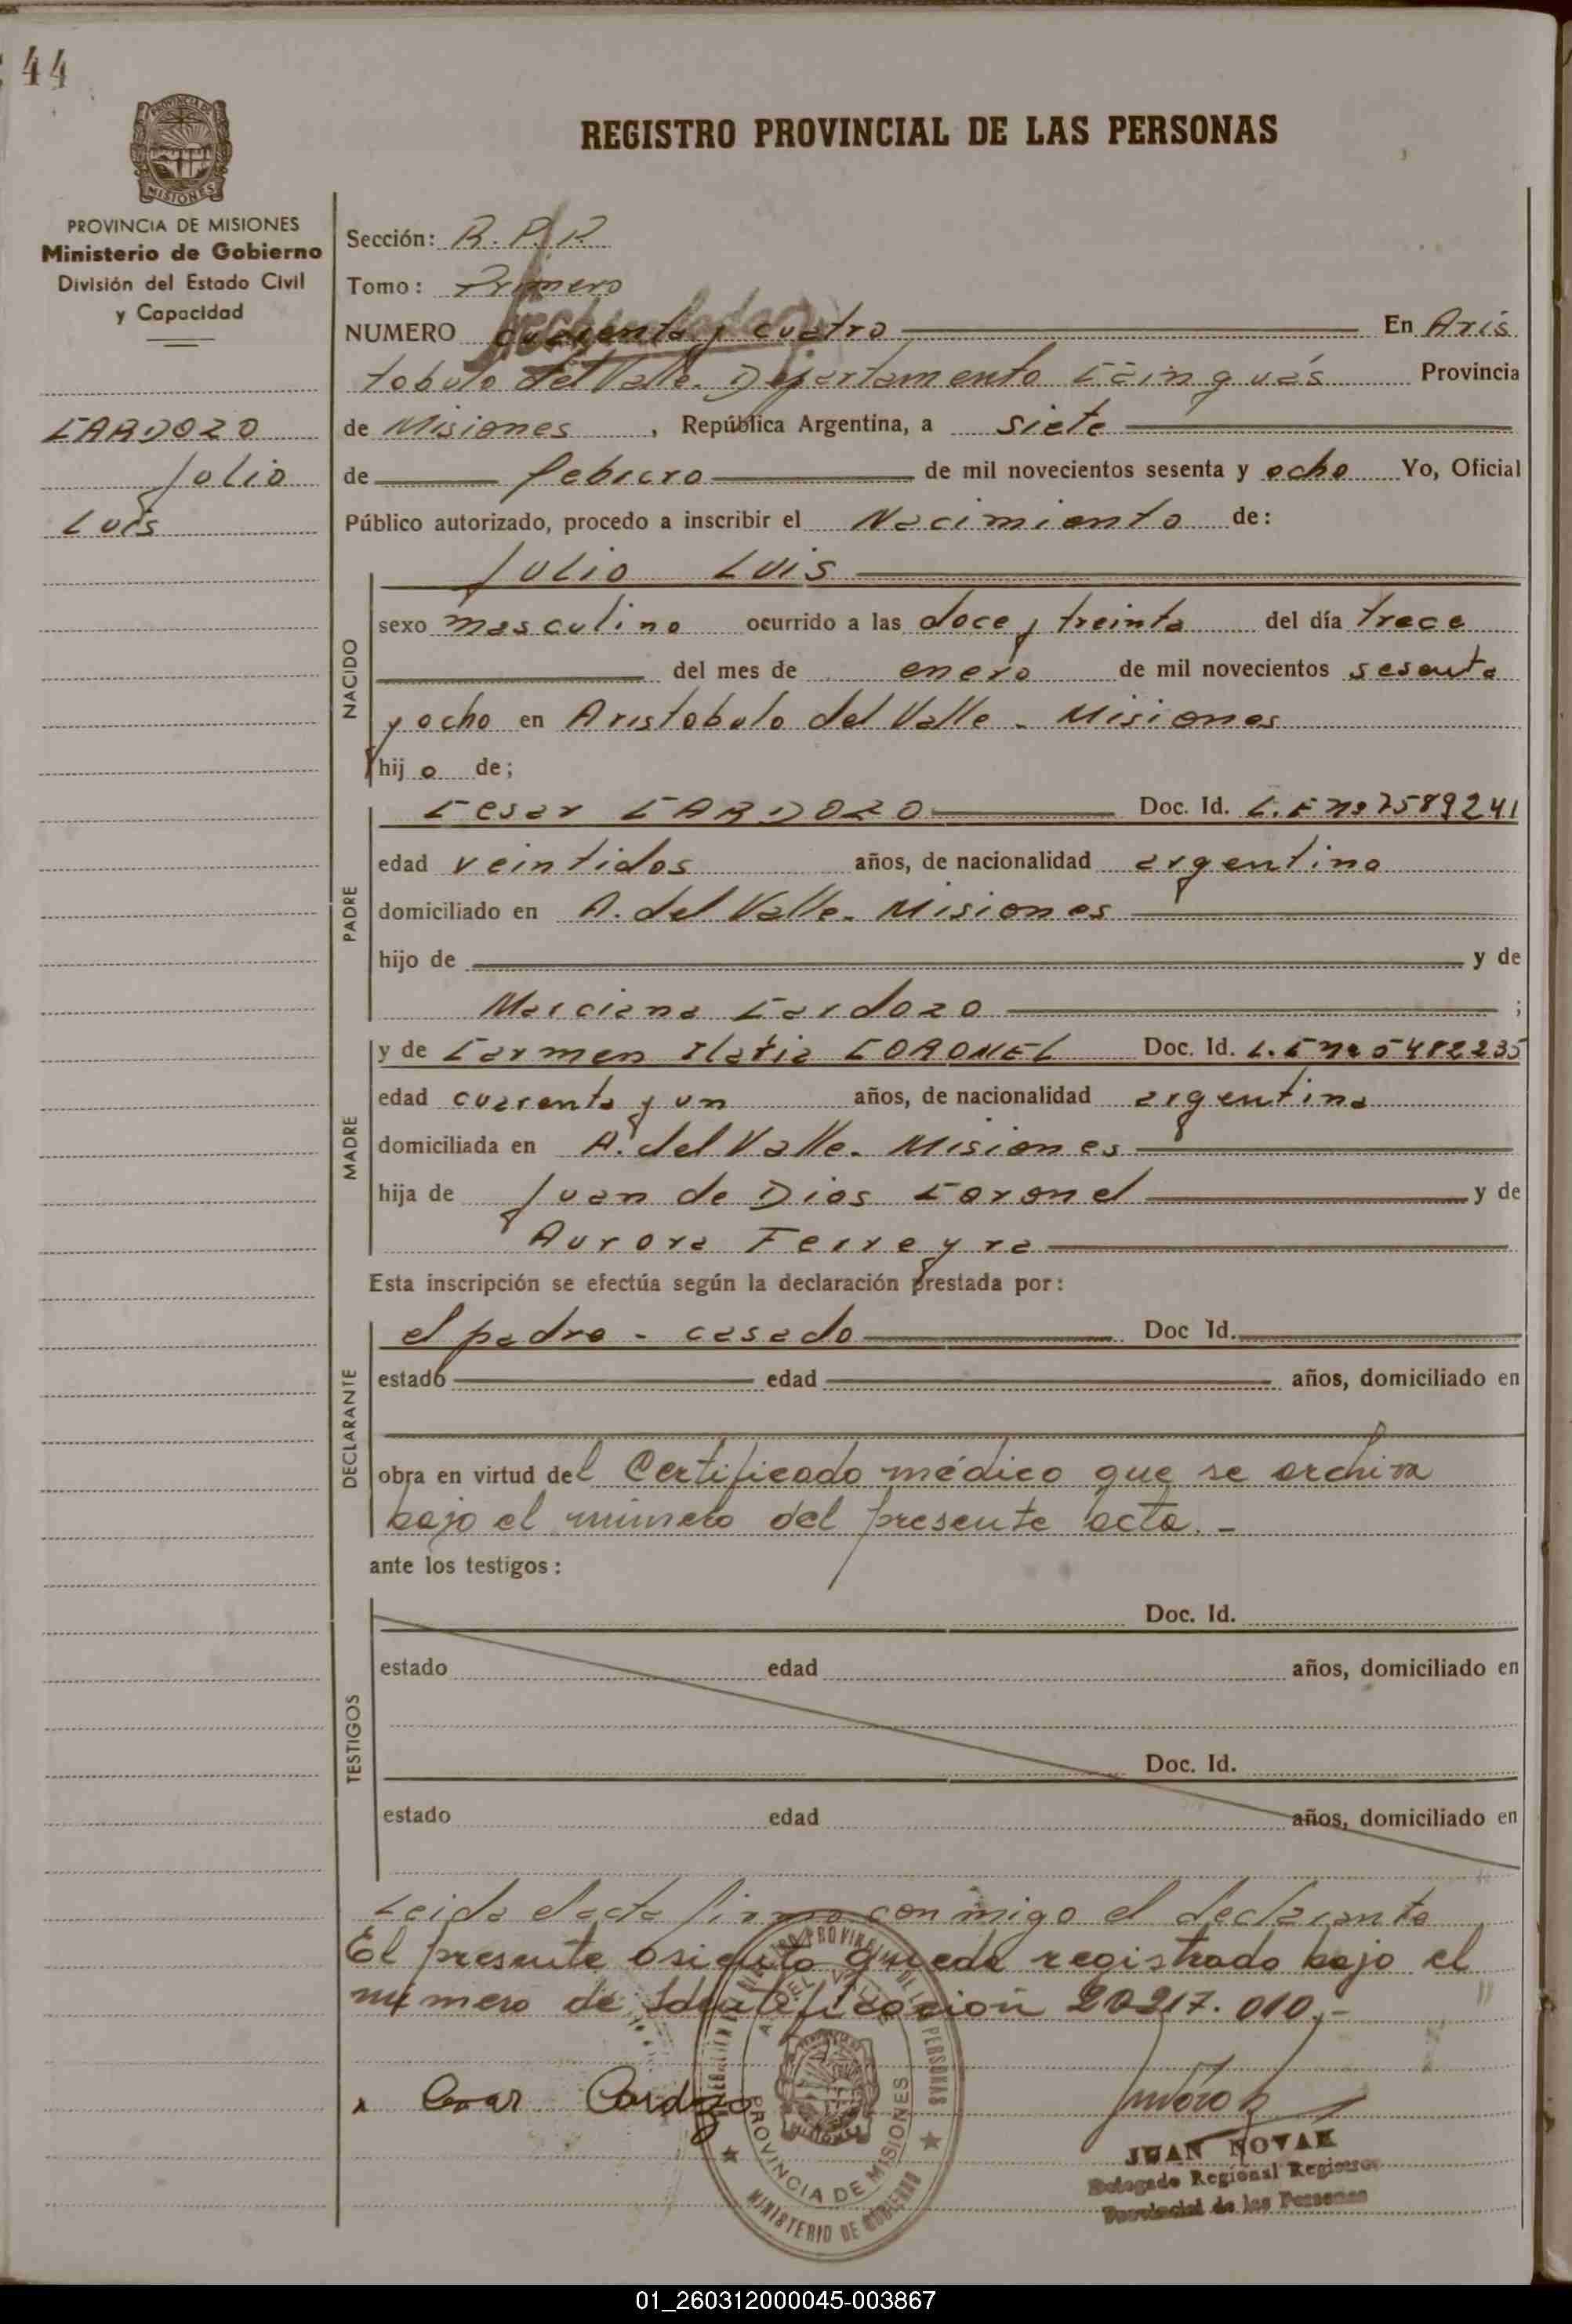 44
REGISTRO PROVINCIAL DE LAS PERSONAS
MISIONES
PROVINCIA DE MISIONES
Ministerio de Gobierno
División del Estado Civil
y Capacidad
CARDOZO
Julio
Luis
Sección: R.P.P.
Tomo: Primero
NUMERO cuarenta y cuatro En Aris
tobulo del Valle. Departamento Cainguás Provincia
de Misiones, República Argentina, a siete
de febrero de mil novecientos sesenta y ocho Yo, Oficial
Público autorizado, procedo a inscribir el Nacimiento de:
NACIDO
Julio Luis
sexo masculino ocurrido a las doce y treinta del día trece
del mes de enero de mil novecientos sesenta
y ocho en Aristobulo del Valle - Misiones
hijo de;
PADRE
Cesar CARDOZO Doc. Id. L.E nº 7589241
edad veintidos años, de nacionalidad argentina
domiciliado en A. del Valle. Misiones
hijo de y de
Marciana Cardozo ;
MADRE
y de Carmen CORONEL Doc. Id. L.E nº 5482235
edad cuarenta y un años, de nacionalidad argentina
domiciliada en A. del Valle. Misiones
hija de Juan de Dios Coronel y de
Aurora Ferreyra
Esta inscripción se efectúa según la declaración prestada por:
DECLARANTE
el padre - casado Doc Id.
estado edad años, domiciliado en
obra en virtud del Certificado médico que se archiva
bajo el número del presente acta. -
ante los testigos:
TESTIGOS
Doc. Id.
estado edad años, domiciliado en
Doc. Id.
estado edad años, domiciliado en
Leida el acta firma conmigo el declarante
El presente asiento queda registrado bajo el
número de Identificación 20217.010.-
Cesar Cardozo
PROVINCIA DE MISIONES
MINISTERIO DE GOBIERNO
JUAN NOVAK
Delegado Regional Registro
Provincial de las Personas
01_260312000045-003867